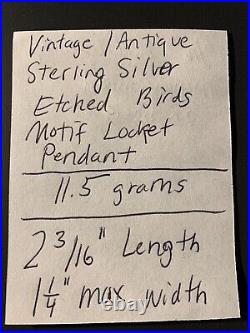 Vintage / Antique
Sterling Silver
Etched Birds
Motif Locket
Pendant
11.5 grams
2 3/16" Length
1 1/4" max width